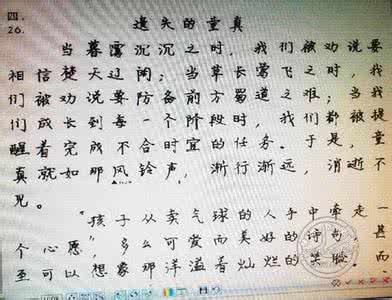 四、
26.
遗失的童真
当暮霭沉沉之时，我们被劝说要
相信楚天辽阔；当草长莺飞之时，我
们被劝说要防备前方蜀道之难；当我
们成长到每一个阶段时，我们都被提
醒着完成不合时宜的任务。于是，童
真就如那风铃声，渐行渐远，消逝不
见。
"孩子从卖气球的人手中牵走一
个心愿"，多么可爱而美好的诗句，甚而
至可以想象那洋溢着灿烂的笑脸。